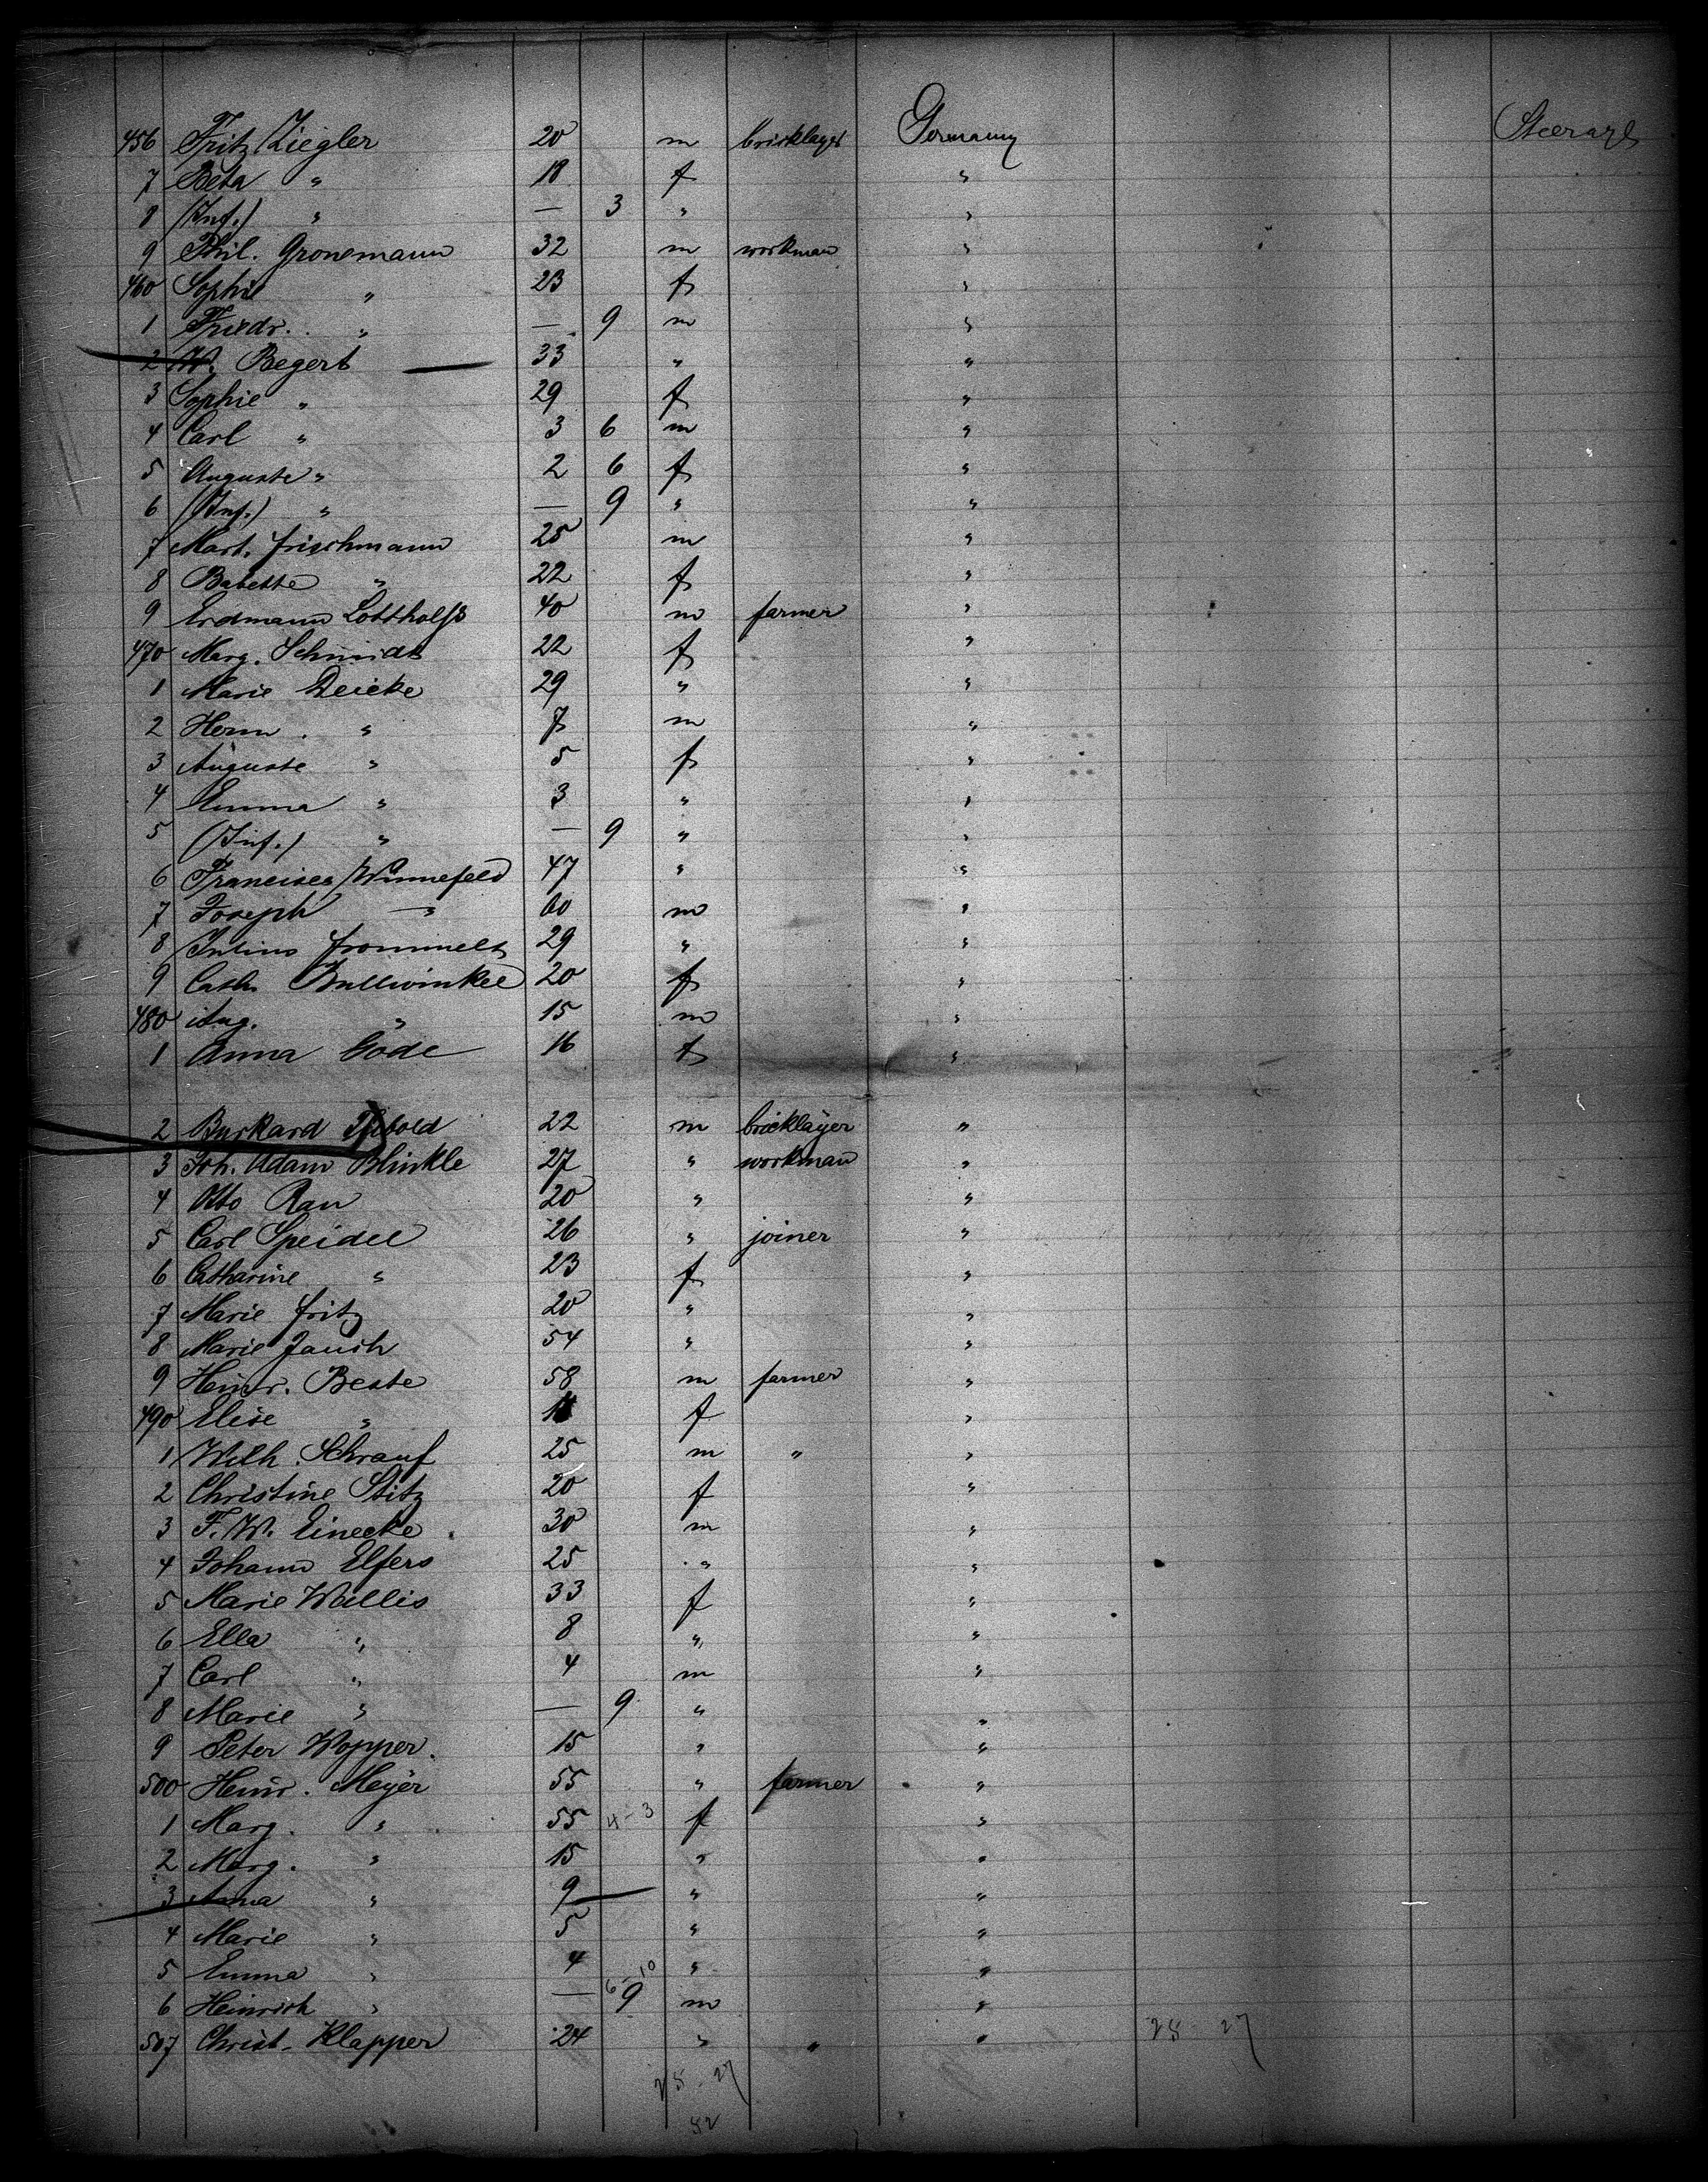 456 Fritz Ziegler 20 m bricklayer Germany Steerage
7 Beta " 18 f "
8 (Inf.) " — 3 " "
9 Phil. Gronemann 32 m workman "
460 Sophie " 23 f "
1 Friedr. " — 9 m "
2 W. Begert 33 " "
3 Sophie " 29 f "
4 Carl " 3 6 m "
5 Auguste " 2 6 f "
6 (Inf.) " — 9 " "
7 Mart. Frischmann 25 m "
8 Babette " 22 f "
9 Erdmann 40 m farmer "
470 Marg. Schmidt 22 f "
1 Marie Deicke 29 " "
2 Herm. " 7 m "
3 Auguste " 5 f "
4 Emma " 3 " "
5 (Inf.) " — 9 " "
6 Francisca Winnefeld 47 " "
7 Joseph " 60 m "
8 Julius Frommelt 29 " "
9 Cath. Bullwinkel 20 f "
480 Aug. " 15 m "
1 Anna Gode 16 f "
2 Burkard 22 m bricklayer "
3 Joh. Adam Blinkle 27 " workman "
4 Otto Rau 20 " "
5 Carl Speidel 26 " joiner "
6 Catharine " 23 f "
7 Marie Fritz 20 " "
8 Marie Jauch 54 " "
9 Heinr. Beste 58 m farmer "
490 Elise " f "
1 Wilh. Schrauf 25 m " "
2 Christine Stitz 20 f "
3 F. W. Einecke 30 m "
4 Johann Elfers 25 " "
5 Marie Wallis 33 f "
6 Ella " 8 " "
7 Carl " 4 m "
8 Marie " — 9 " "
9 Peter Wopper. 15 " "
500 Heinr. Meyer 55 " farmer "
1 Marg. " 55 4-3 f "
2 Marg. " 15 " "
3 Anna " 9 " "
4 Marie " 5 " "
5 Emma " 4 " "
6 Heinrich " — 6-10 9 m "
507 Christ. Klapper 24 " " " 25-27
25-27
52